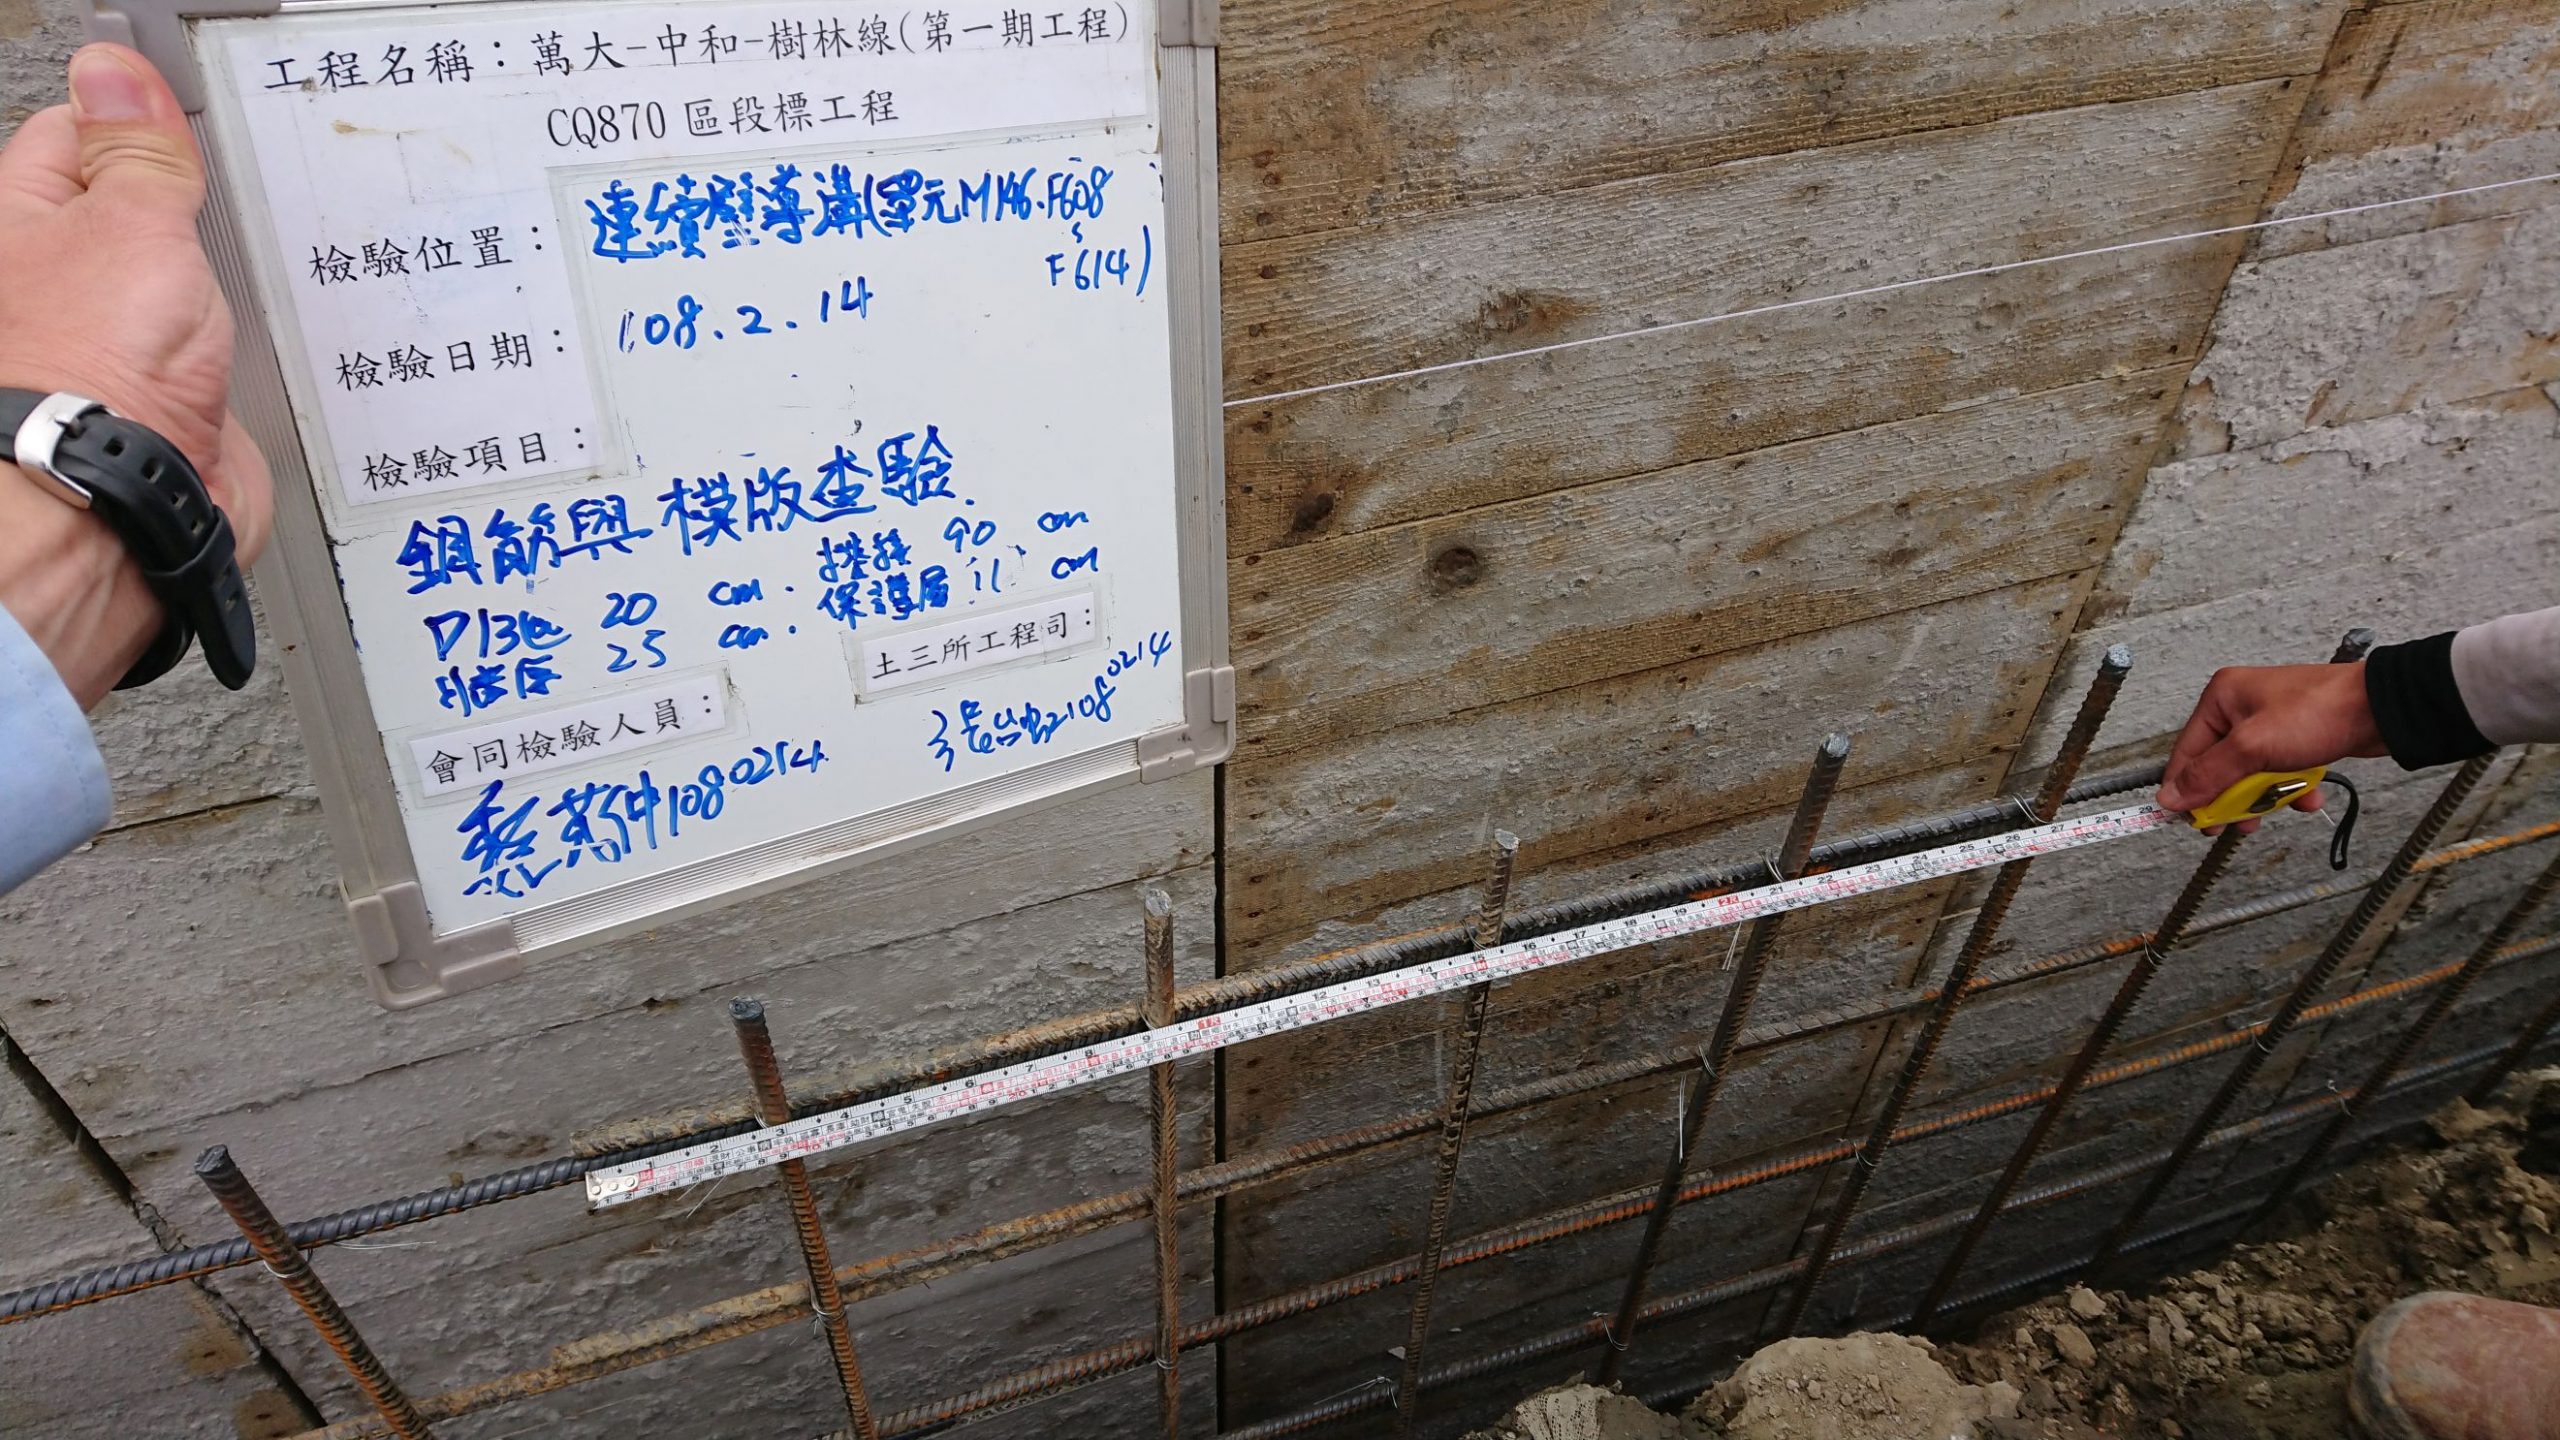 工程名稱：萬大-中和-樹林線(第一期工程)
CQ870 區段標工程
檢驗位置：連續壁導溝(單元M146.F608
~
F614)
檢驗日期：108.2.14
檢驗項目：
鋼筋與模版查驗.
D13@ 20 cm. 搭接 90 cm
25 cm. 保護層 11 cm
土三所工程司：
會同檢驗人員：
1080214
1080214